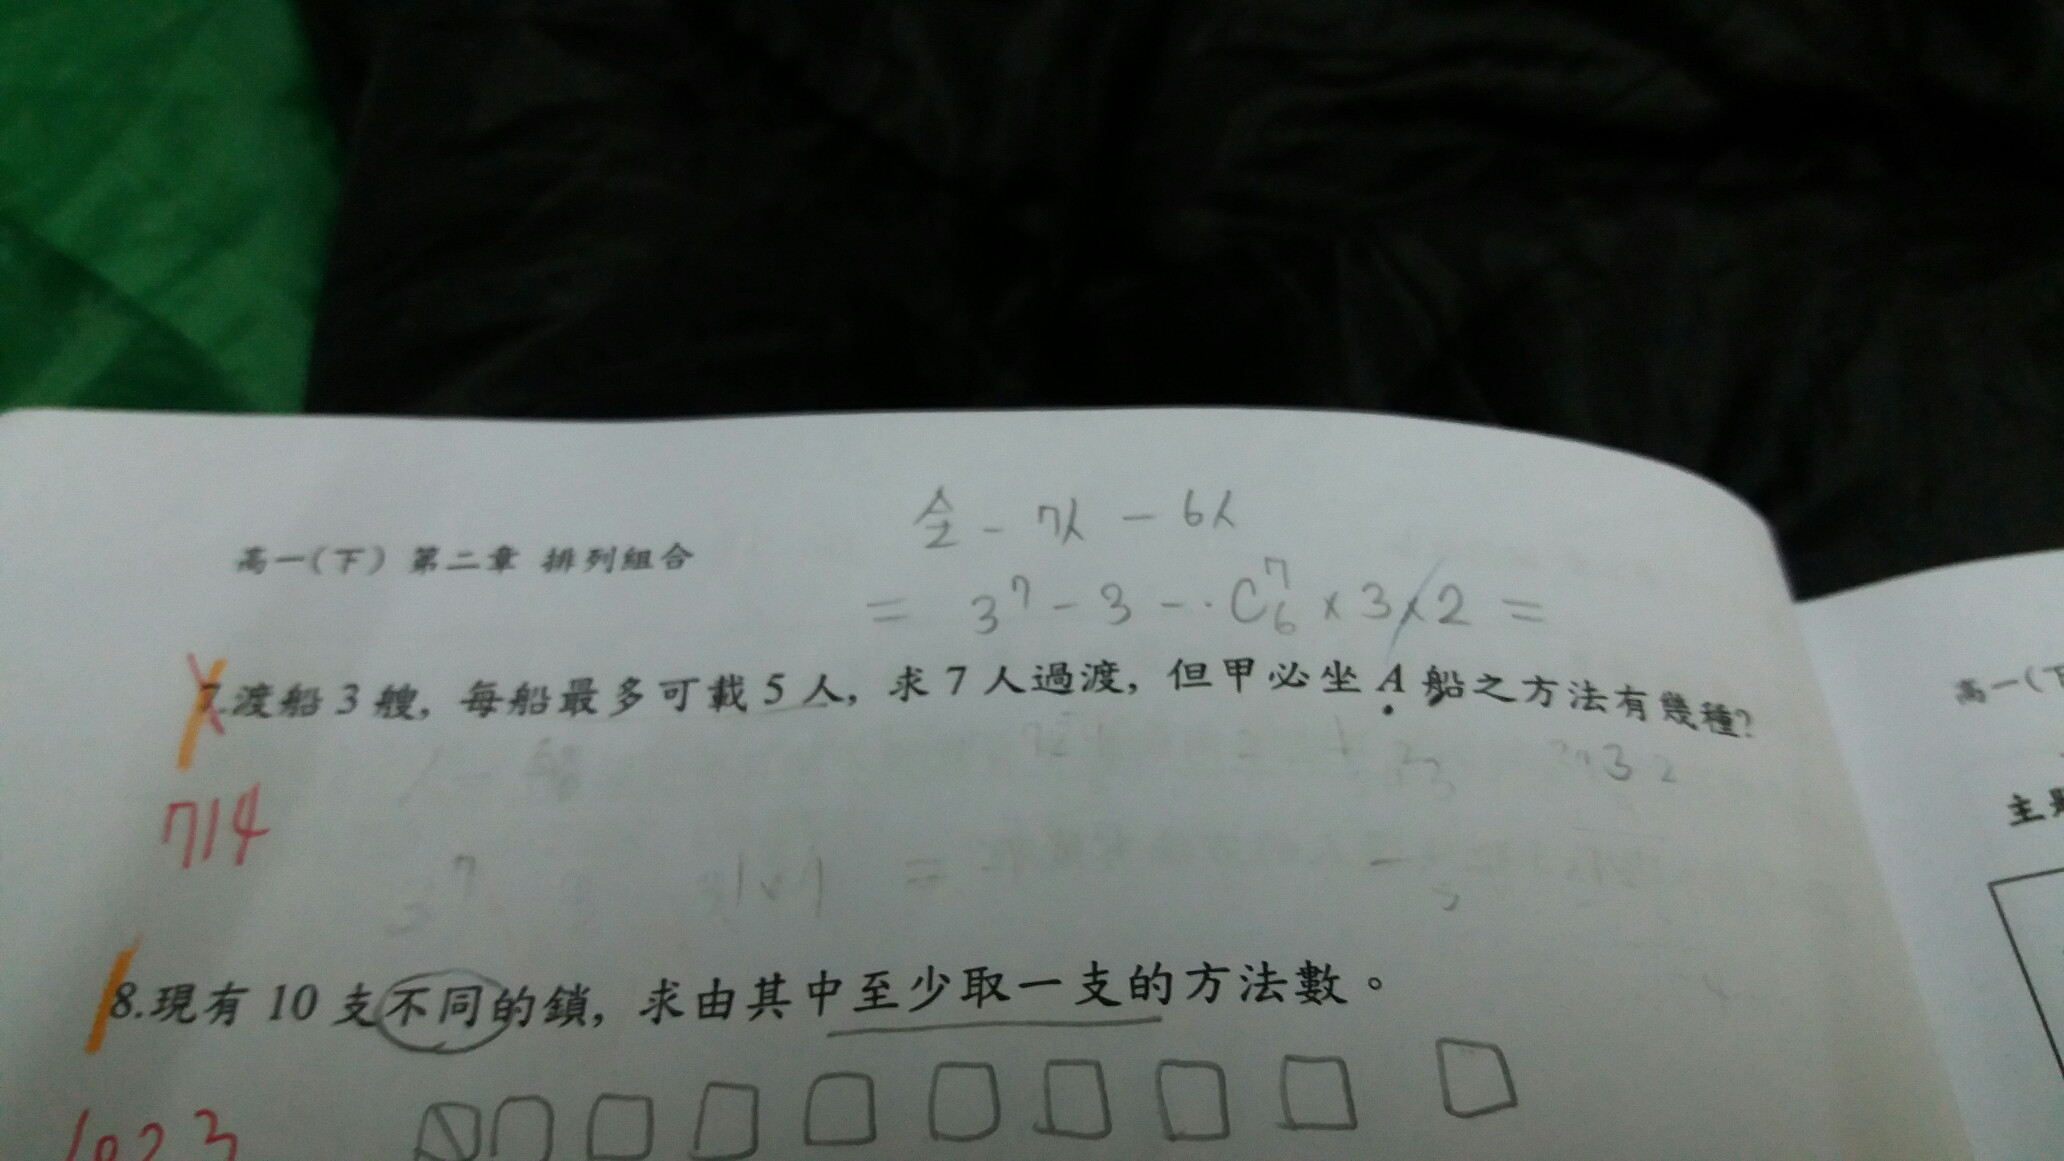 全 - 7人 - 6人
高一(下) 第二章 排列組合
= 3⁷ - 3 - C⁷₆ × 3 × 2 =
7.渡船 3 艘, 每船最多可載 5 人, 求 7 人過渡, 但甲必坐 A 船之方法有幾種?
714
8.現有 10 支不同的鎖, 求由其中至少取一支的方法數。
1023
高一(下
主